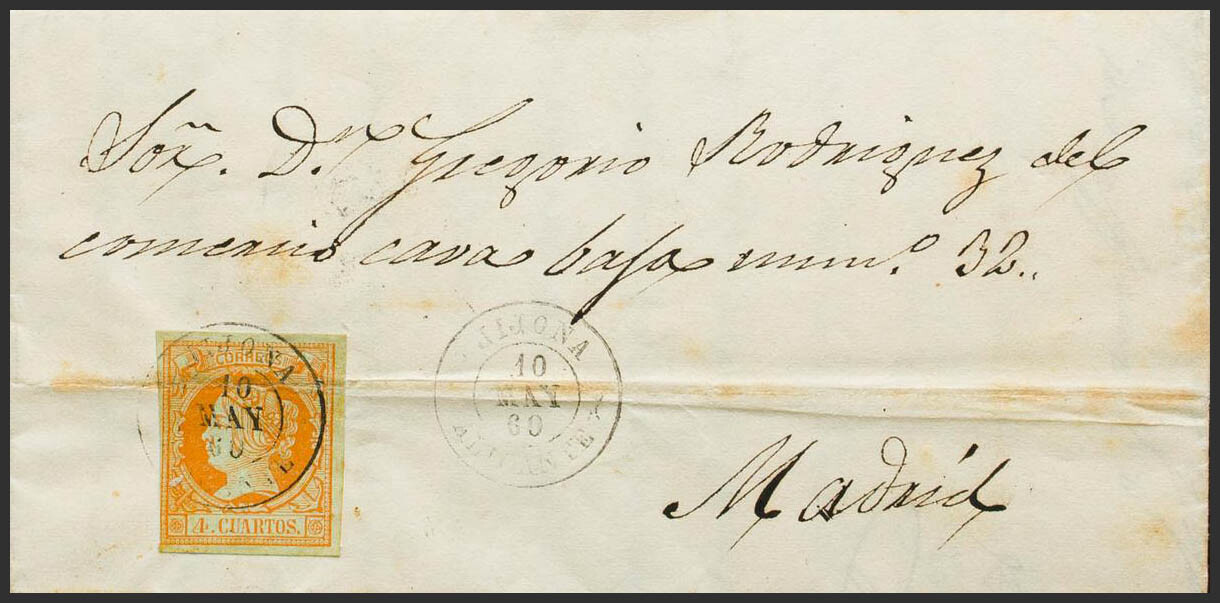 Sor. Dn. Gregorio Rodriguez del
comercio cava baja num.o 32..
JIJONA
10
MAY
60
ALICANTE
CORREOS
JIJONA
10
MAY
60
4 CUARTOS.
Madrid